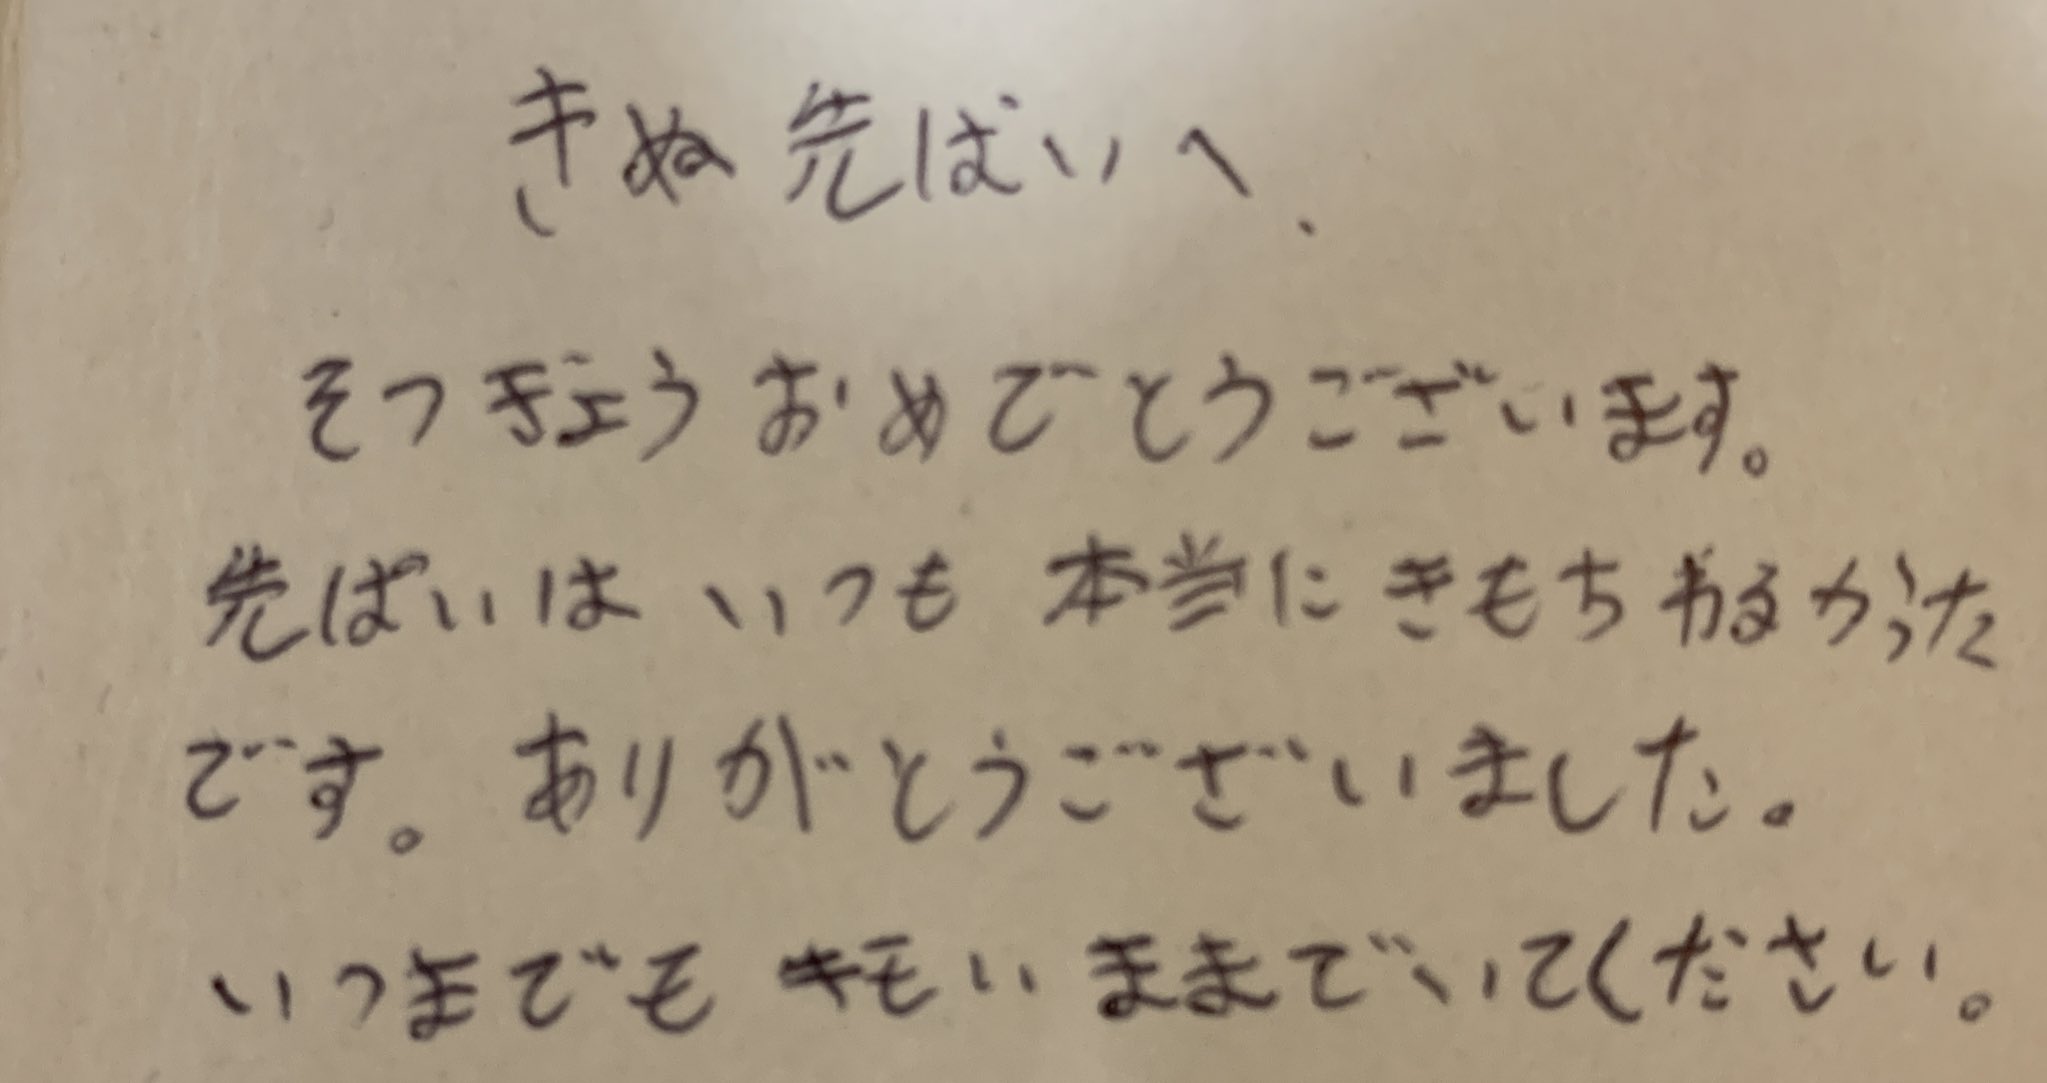 きぬ先ぱいへ、
そつぎょうおめでとうございます。
先ぱいはいつも本当にきもちわるかった
です。ありがとうございました。
いつまでもキモいままでいてください。